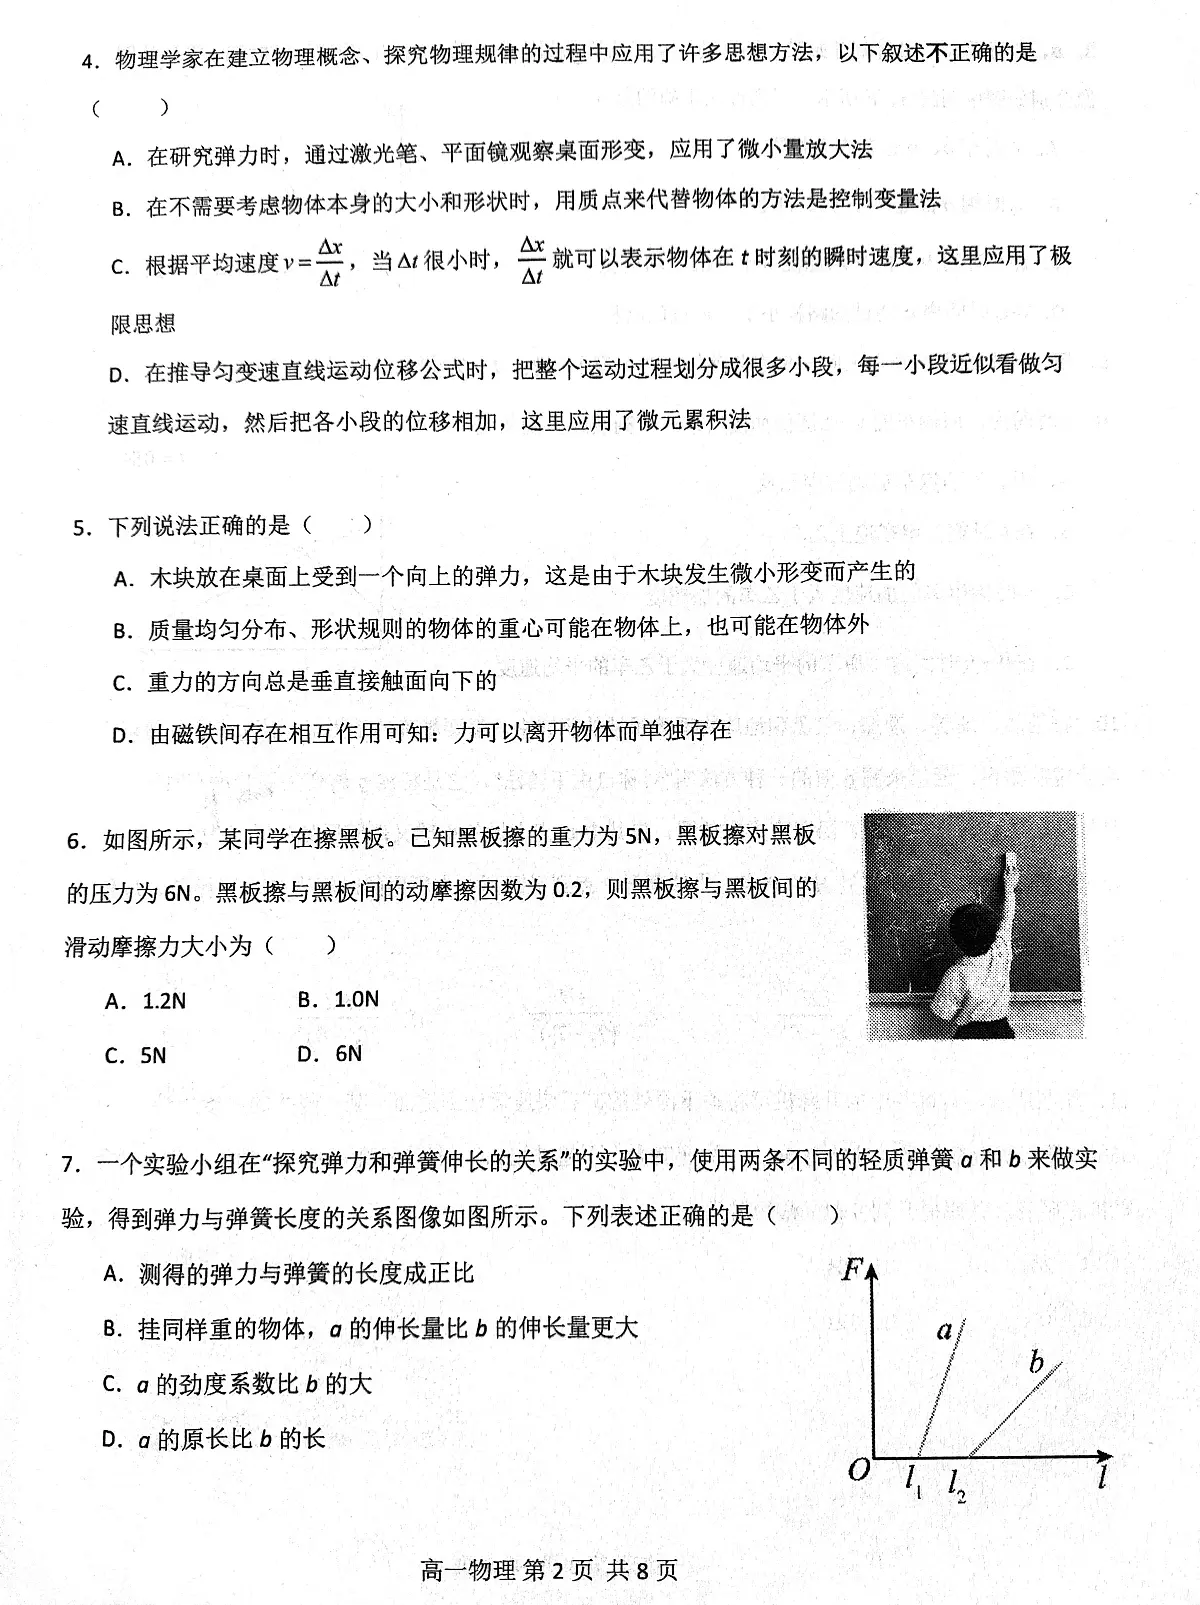 4．物理学家在建立物理概念、探究物理规律的过程中应用了许多思想方法，以下叙述不正确的是
（　　）
A．在研究弹力时，通过激光笔、平面镜观察桌面形变，应用了微小量放大法
B．在不需要考虑物体本身的大小和形状时，用质点来代替物体的方法是控制变量法
C．根据平均速度 v=Δx/Δt，当 Δt 很小时，Δx/Δt 就可以表示物体在 t 时刻的瞬时速度，这里应用了极
限思想
D．在推导匀变速直线运动位移公式时，把整个运动过程划分成很多小段，每一小段近似看做匀
速直线运动，然后把各小段的位移相加，这里应用了微元累积法
5．下列说法正确的是（　　）
A．木块放在桌面上受到一个向上的弹力，这是由于木块发生微小形变而产生的
B．质量均匀分布、形状规则的物体的重心可能在物体上，也可能在物体外
C．重力的方向总是垂直接触面向下的
D．由磁铁间存在相互作用可知：力可以离开物体而单独存在
6．如图所示，某同学在擦黑板。已知黑板擦的重力为 5N，黑板擦对黑板
的压力为 6N。黑板擦与黑板间的动摩擦因数为 0.2，则黑板擦与黑板间的
滑动摩擦力大小为（　　）
A．1.2N B．1.0N
C．5N D．6N
7．一个实验小组在“探究弹力和弹簧伸长的关系”的实验中，使用两条不同的轻质弹簧 a 和 b 来做实
验，得到弹力与弹簧长度的关系图像如图所示。下列表述正确的是（　　）
A．测得的弹力与弹簧的长度成正比
B．挂同样重的物体，a 的伸长量比 b 的伸长量更大
C．a 的劲度系数比 b 的大
D．a 的原长比 b 的长
F
a
b
O l₁ l₂ l
高一物理 第 2 页 共 8 页